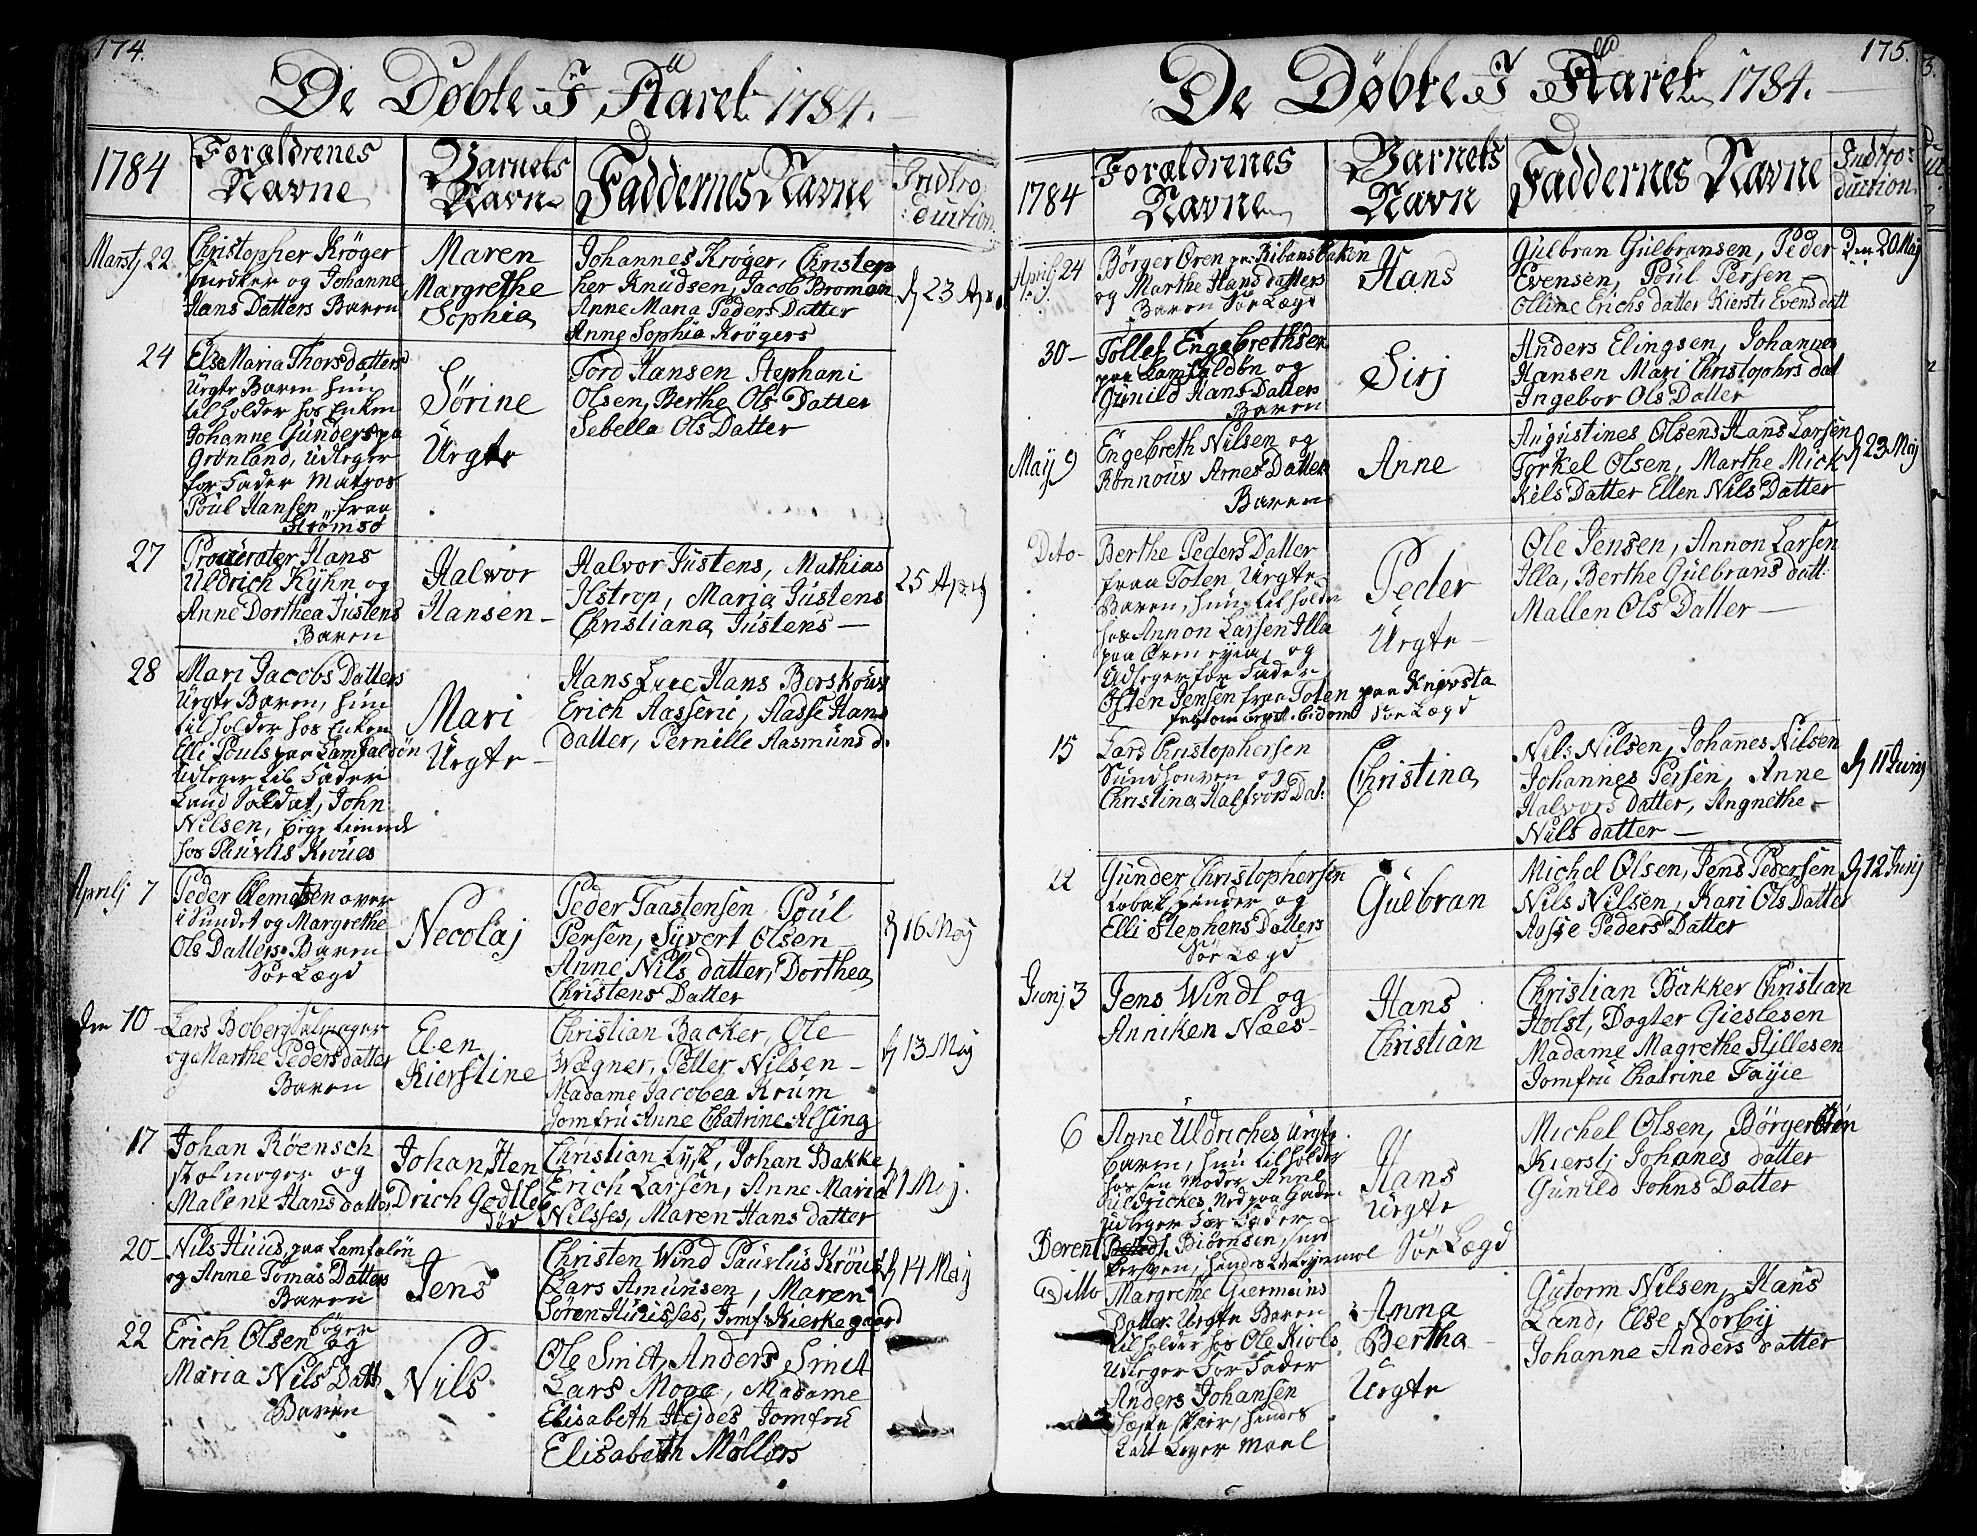 174.
De Döbte I Aaret 1784.
1784
Forældrenes Navne
Barnets Navn
Faddernes Navne
Indtroduction
Martj 22.
Christopher Kröger
og Johanne
Hans Datters Baren
Maren
Margrethe
Sophia
Johannes Kröger, Christop
her Knudsen, Jacob Broman
Anne Maria Peders Datter
Anne Sophia Krögers
23 Apr.
24
Else Maria Thorsdatters
Uegte Baren hun
til holder hos Enken
Johanne Gunders paa
Grønland, Udleger
for Fader Matros
Poul Hansen fraa
Strömsö
Sörine
Uegte
Tord Hansen Stephani
Olsen, Berthe Ols Datter
Sebella Ols Datter
27
Procurator Hans
Uldrich Kyhn og
Anne Dorthea Justens
Baren
Halvor
Hansen
Halvor Justens, Mathias
Ilstrop, Maria Justens
Christiana Justens
25 April
28
Mari Jacobs Datters
Uegte Baren, hun
til holder hos Enken
Elli Pouls paa Lamfaldön
Udleger til Fader
Land Soldat, John
Nilsen,
hos Paulus Kroues
Mari
Uegte
Hans Lye Hans Berskoug
Erich Aassene, Aasse Hans
datter, Pernille Aasmunsd.
Aprilj 7
Peder Clemetsen over
i Sundet og Margrethe
Ols Datters Baren
Sör Lægd
Necolaj
Peder Taastensen Poul
Persen, Syvert Olsen
Anne Nils datter, Dorthea
Christens Datter
16 Maj
Den 10
Lars Boberg
og Marthe Pedersdatter
Baren
Elen
Kierstine
Christian Backer, Ole
Wægner, Petter Nilsen
Madame Jacobea Krum
Jomfru Anne Chatrine Alsing
13 Maj
17
Johan Röensch
skolmager og
Malene Hansdatter
Johan Hen
Drich Godtleb
Sör
Christian Lysk, Johan Bakke
Erich Larsen, Anne Maria
Nilsses, Maren Hans datter
1 Maj.
20
Nils Huus, paa Lamfalön
og Anne Tomas Datters
Baren
Jens
Christen Wind Paulus Kröus
Lars Amunsen, Maren
Sören Hinisses, Jomf. Kierkegaard
14 Maj
22
Erich Olsen böger og
Maria Nils Datt
Baren
Nils
Ole Smit, Anders Smit
Lars Moge, Madame
Elisabeth Hejdes, Jomfru
Elisabeth Möllers
175.
De Döbte I Aaret 1784.
1784
Forældrenes Navne
Barnets Navn
Faddernes Navne
Indtroduction
April 24
Börger Ören paa Ribansbaken
og Marthe Hansdatters
Baren Sör Lægd
Hans
Gulbran Gulbransen, Peder
Evensen, Poul Persen
Olline Erichs datter Kiersti Evens datt
Den 20 Maj
30
Tollef Engebrethsen
paa Lamfaldön og
Gunild Hans Datters
Baren
Sirj
Anders Elingsen, Johannes
Hansen Mari Christophrs dat
Ingebor Ols Datter
Maij 9
Engebreth Nilsen og
Rönnouv Arnes Datters
Baren
Anne
Augustines Olsens Hans Larsen
Torkel Olsen, Marthe Mick
kels Datter Ellen Nils Datter
23 Maj
Dito
Berthe Peders Datter
fraa Toten Uegte
Baren, hun til holder
hos Annon Larsen Illa
paa Ören eyia, og
Udleger for Fader
Östen Jensen fraa Toten paa Knivsta
Sör Lægd
Peder
Uegte
Ole Jensen, Annon Larsen
Illa, Berthe Gulbrans datt:
Mallen Ols Datter
15
Lars Christophersen
Sundhouven og
Christina Halfvors Dat:
Christina
Nils Nilsen, Johanes Nilsen
Johannes Persen, Anne
Halvors datter, Angnethe
Nils datter
11 Junij
22
Gunder Christophersen
Tobak spinder og
Elli Stephens Datters
Sör Lægd
Gulbran
Michel Olsen, Jens Pedersen
Nils Nilsen, Kari Ols Datter
Aasse Peders Datter
12 Junij
Junj 3
Jens Windt og
Anniken Næes
Hans
Christian
Christian Bakker Christian
Holst, Dogter Giestesen
Madame Magrethe Stillesen
Jomfru Chatrine Fayie
6
Anne Uldriches Uegte
Baren, hun til holder
hos sin Moder Anne
Uldriches
Udleger For Fader
Berent Biörnsen,
Sör Lægd
Hans
Uegte
Michel Olsen, Börger Ören
Kierstj Johanes datter
Gunild Johns Datter
Ditto
Margrethe Giermuns
Datter Uegte Baren
til holder hos Ole Kiols
Udleger For Fader
Anders Johansen
hendes
Lat Leger maal
Anna
Bertha
Uegte
Gutorm Nilsen, Hans
Land, Else Norbij
Johanne Anders datter